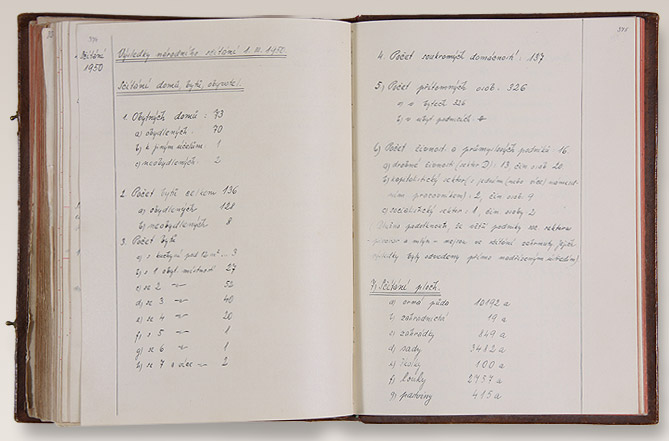 344
Sčítání
1950
Výsledky národního sčítání 1. III. 1950.
Sčítání domů, bytů, obyvatel.
1. Obytných domů : 73
a) obydlených : 70
b) k jiným účelům : 1
c) neobydlených : 2
2. Počet bytů celkem 136
a) obydlených 128
b) neobydlených 8
3. Počet bytů
a) s kuchyní pod 12 m² ... 3
b) s 1 obyt. místností 27
c) se 2 -"- 52
d) se 3 -"- 40
e) se 4 -"- 20
f) s 5 -"- 1
g) se 6 -"- 1
h) se 7 a více -"- 2
4. Počet soukromých domácností : 137
5) Počet přítomných osob : 326
" " v bytech 326
" v ubyt. podnicích
6) Počet živností a průmyslových podniků : 16
a) drobné živnosti (sektor D) : 13, čin. osob 20
b) kapitalistický sektor (s jedním (nebo více) námezd-
ním pracovníkem) : 2, čin. osob 9
c) socialistický sektor : 1, čin. osoby 2
že větší podniky soc. sektoru
pivovar a mlýn - nejsou ve sčítání zahrnuty. Jejich
výsledky byly odvedeny přímo nadřízeným úřadům)
7) Sčítání ploch.
a) orná půda 10192 a
b) zahradnictví 19 a
c) zahrádky 849 a
d) sady 3482 a
e) školky 100 a
f) louky 2737 a
g) pastviny 415 a